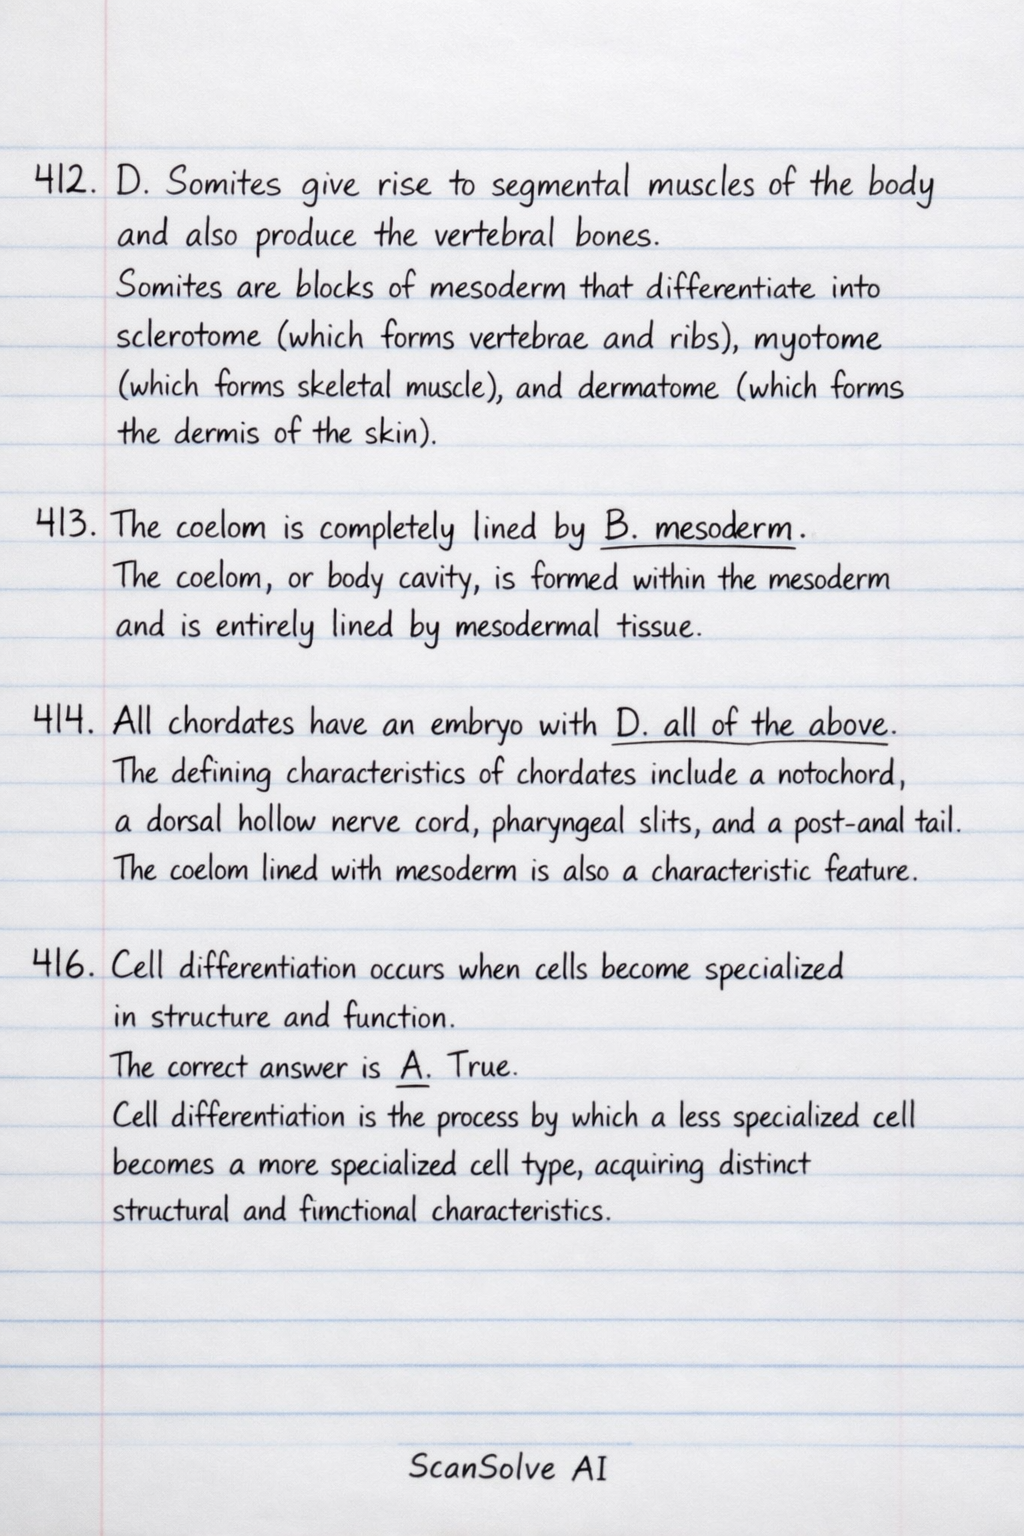 412. D. Somites give rise to segmental muscles of the body
and also produce the vertebral bones.
Somites are blocks of mesoderm that differentiate into
sclerotome (which forms vertebrae and ribs), myotome
(which forms skeletal muscle), and dermatome (which forms
the dermis of the skin).
413. The coelom is completely lined by B. mesoderm.
The coelom, or body cavity, is formed within the mesoderm
and is entirely lined by mesodermal tissue.
414. All chordates have an embryo with D. all of the above.
The defining characteristics of chordates include a notochord,
a dorsal hollow nerve cord, pharyngeal slits, and a post-anal tail.
The coelom lined with mesoderm is also a characteristic feature.
416. Cell differentiation occurs when cells become specialized
in structure and function.
The correct answer is A. True.
Cell differentiation is the process by which a less specialized cell
becomes a more specialized cell type, acquiring distinct
structural and fimctional characteristics.
ScanSolve AI